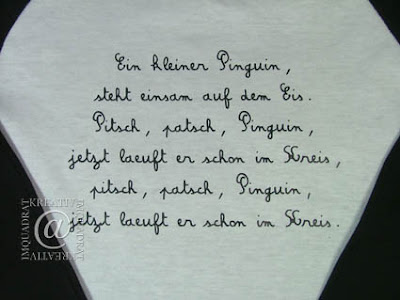 Ein kleiner Pinguin,
steht einsam auf dem Eis.
Pitsch, patsch, Pinguin,
jetzt laeuft er schon im Kreis,
pitsch, patsch, Pinguin,
jetzt laeuft er schon im Kreis.
KREATIV@
IMQUADRAT
KREATIV@
IMQUADRAT